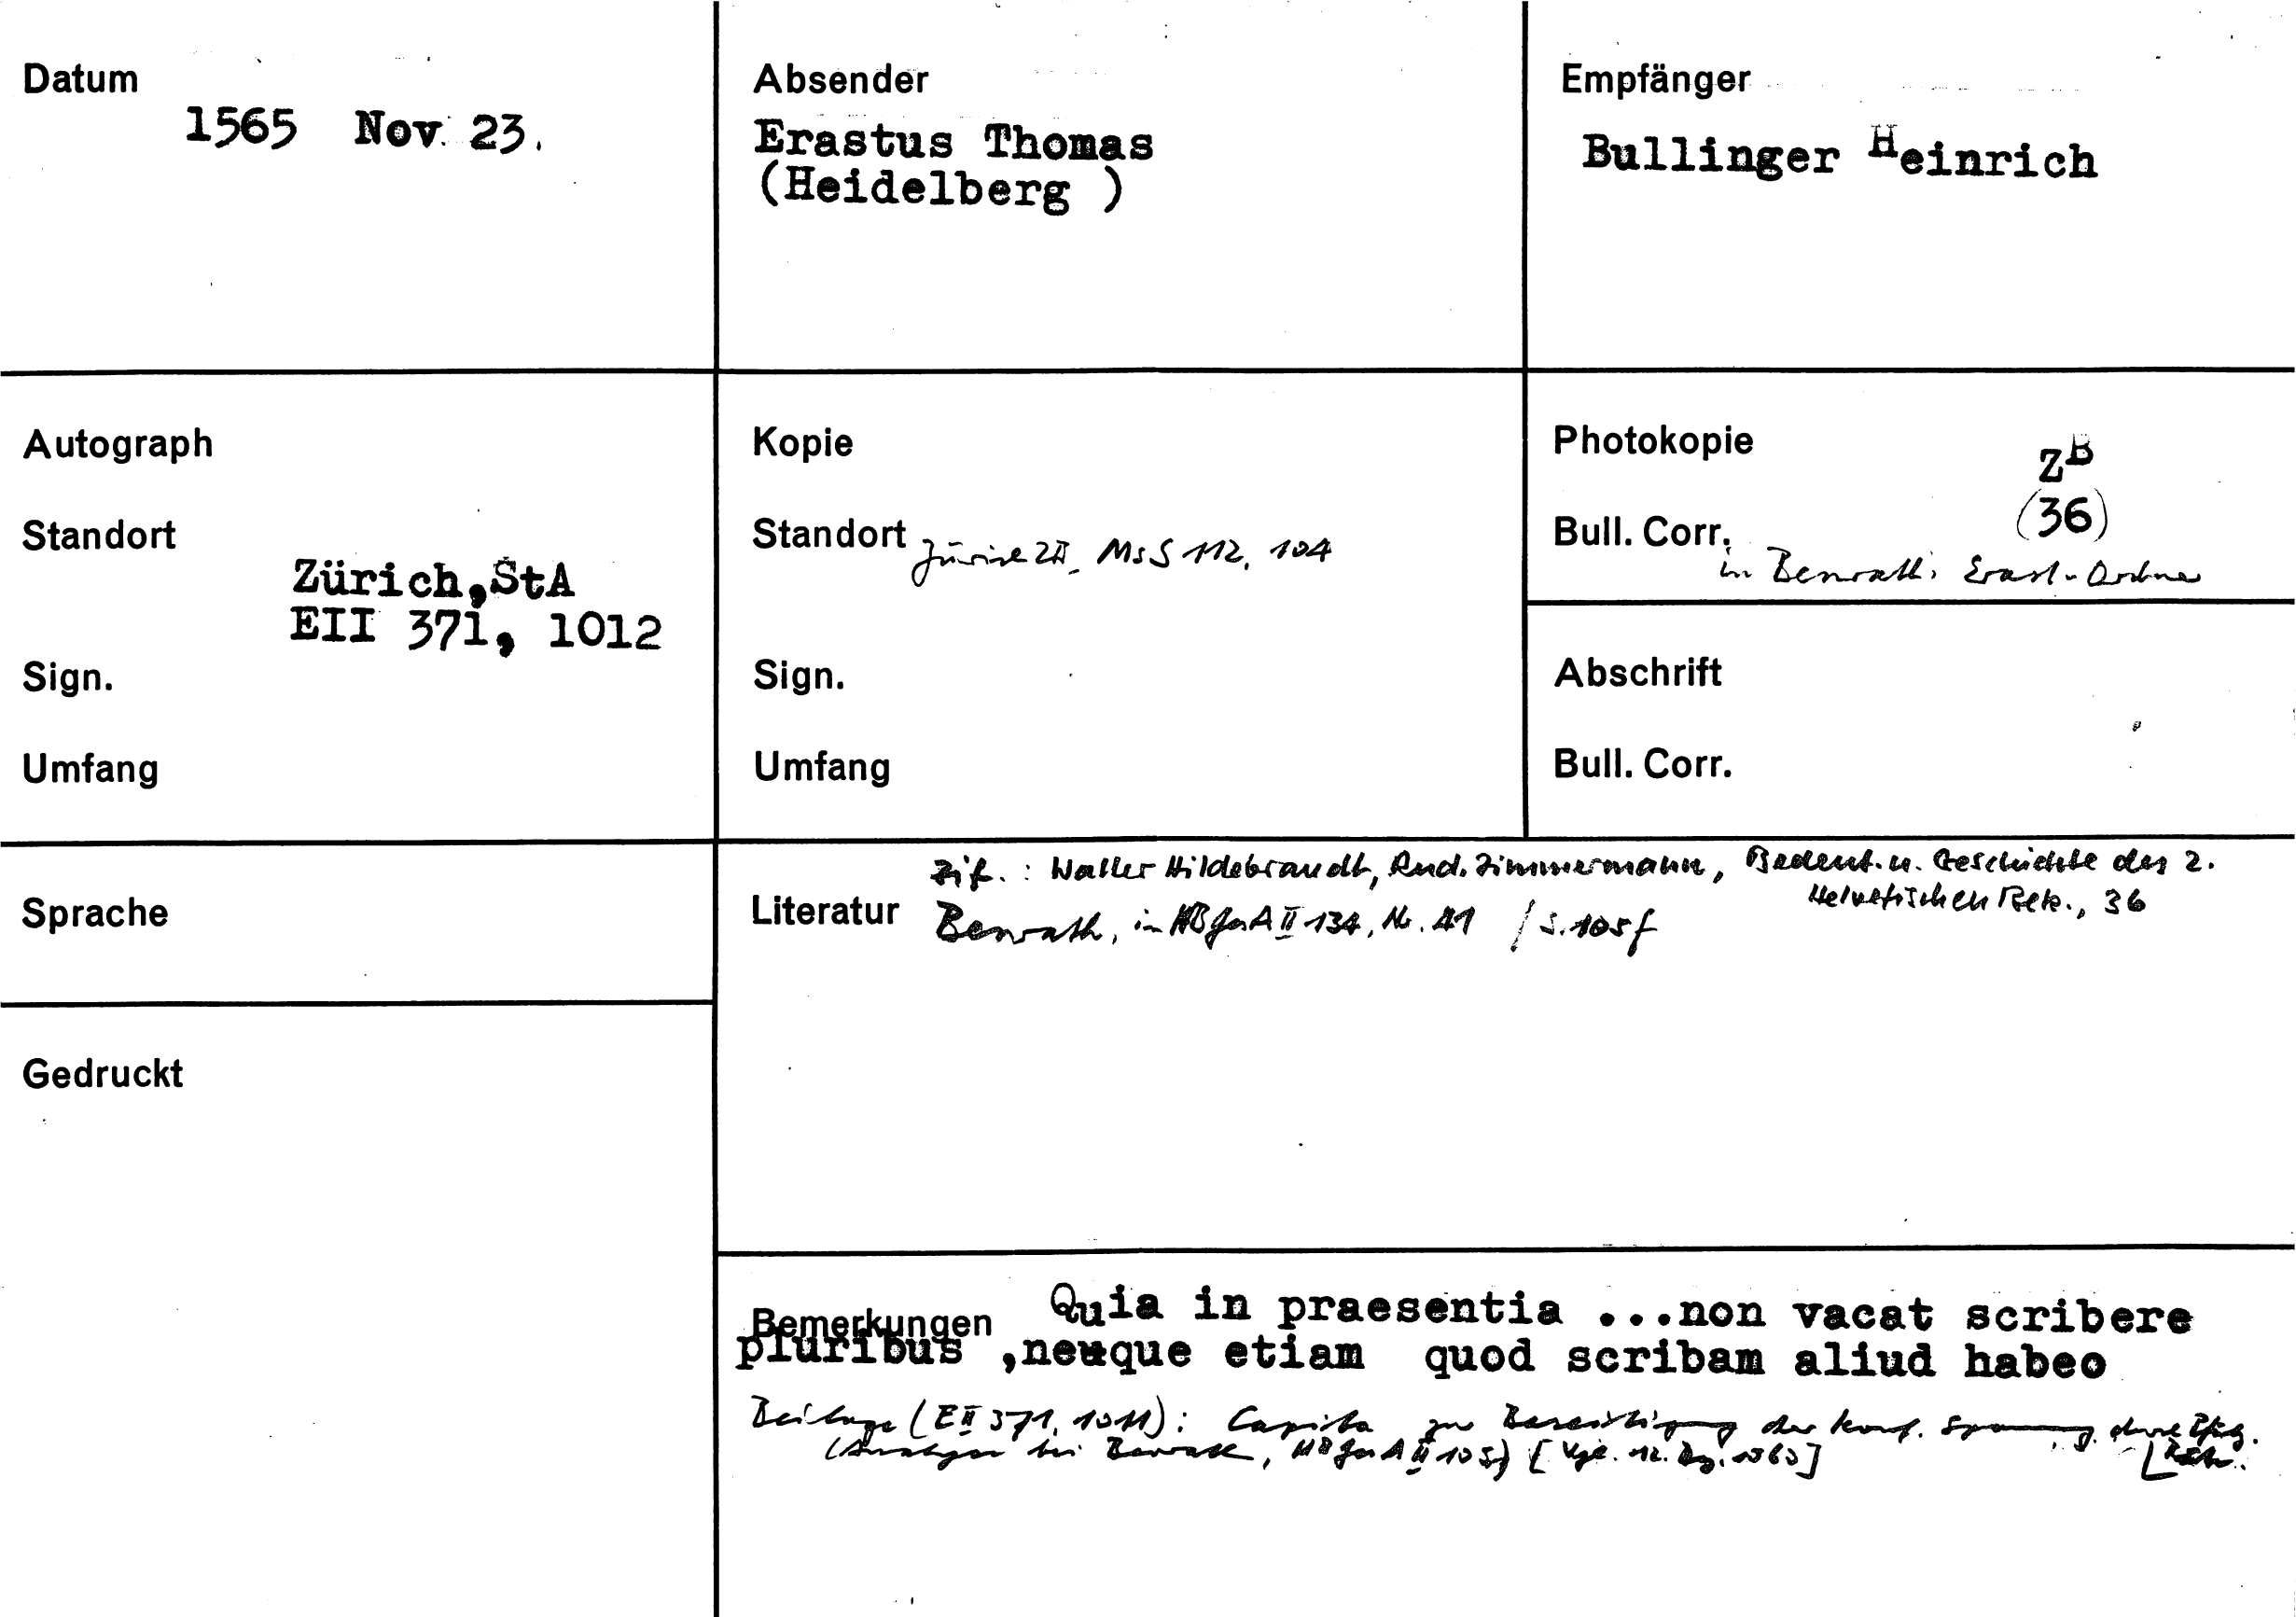 Datum
1565 Nov. 23.
Absender
Erastus Thomas
(Heidelberg )
Empfänger
Bullinger Heinrich
Autograph
Standort
Zürich,StA
EII 371, 1012
Sign.
Umfang
Kopie
Standort Zürich ZB, Ms S 112, 104
Sign.
Umfang
Photokopie
ZB
(36)
Bull. Corr.
in Benrath's Erast-Ordner
Abschrift
Bull. Corr.
Sprache
Gedruckt
Zit.: Walter Hildebrandt, Rud. Zimmermann, Bedeut. u. Geschichte des 2.
Helvetischen Bek., 36
Literatur Benrath, in HBGesA II 134, Nr. 41 / S. 105f
Bemerkungen Quia in praesentia ...non vacat scribere
pluribus ,neque etiam quod scribam aliud habeo
Beilage (E II 371, 1011): Capita zur Beseitigung der konf. Spannung
(Analyse bei Benrath, HBGesA II 105)